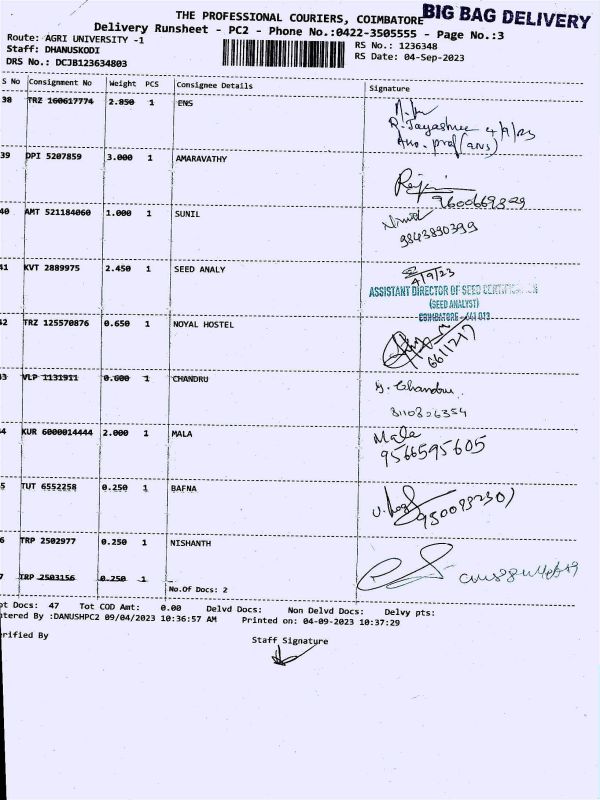 THE PROFESSIONAL COURIERS, COIMBATORE BIG BAG DELIVERY
Delivery Runsheet - PC2 - Phone No.:0422-3505555 - Page No.:3
Route: AGRI UNIVERSITY -1
Staff: DHANUSKODI
DRS No.: DCJB123634803
RS No.: 1236348
RS Date: 04-Sep-2023
S No Consignment No Weight PCS Consignee Details Signature
38 TRZ 160617774 2.850 1 ENS
R. Jayashree 4/9/23
39 DPI 5207859 3.000 1 AMARAVATHY
40 AMT 521184060 1.000 1 SUNIL
9843890399
41 KVT 2889975 2.450 1 SEED ANALY
4/9/23
ASSISTANT DIRECTOR OF SEED CERTIFICATION
(SEED ANALYST)
COIMBATORE - 641 013
42 TRZ 125570876 0.650 1 NOYAL HOSTEL
6611217
43 VLP 1131911 0.600 1 CHANDRU
Chandru
44 KUR 6000014444 2.000 1 MALA
Mala
9566595605
5 TUT 6552258 0.250 1 BAFNA
6 TRP 2502977 0.250 1 NISHANTH
7 TRP 2503156 0.250 1
No.Of Docs: 2
ot Docs: 47 Tot COD Amt: 0.00 Delvd Docs: Non Delvd Docs: Delvy pts:
ntered By :DANUSHPC2 09/04/2023 10:36:57 AM Printed on: 04-09-2023 10:37:29
erified By
Staff Signature